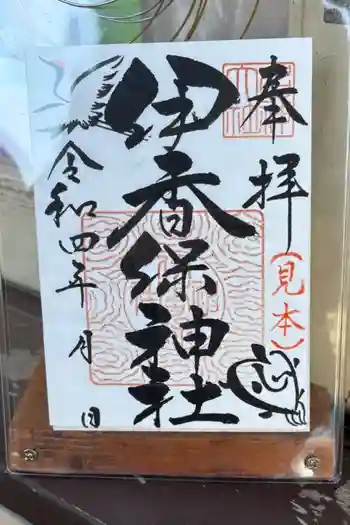 奉拝
（見本）
伊香保神社
令和四年 月 日